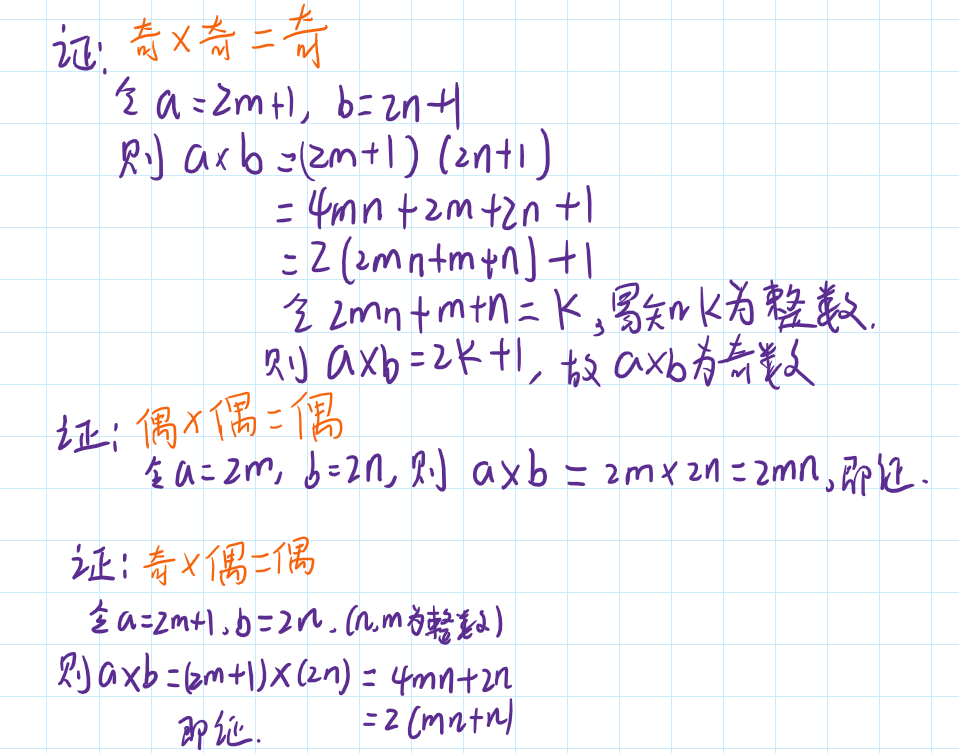 证: 奇×奇=奇
令 a=2m+1, b=2n+1
则 a×b=(2m+1)(2n+1)
=4mn+2m+2n+1
=2(2mn+m+n)+1
令 2mn+m+n=K, 易知 K为整数.
则 a×b=2K+1, 故 a×b为奇数
证: 偶×偶=偶
令a=2m, b=2n, 则 a×b = 2m×2n=2mn, 即证.
证: 奇×偶=偶
令a=2m+1, b=2n. (n,m为整数)
则a×b=(2m+1)×(2n) = 4mn+2n
即证. =2(mn+n)